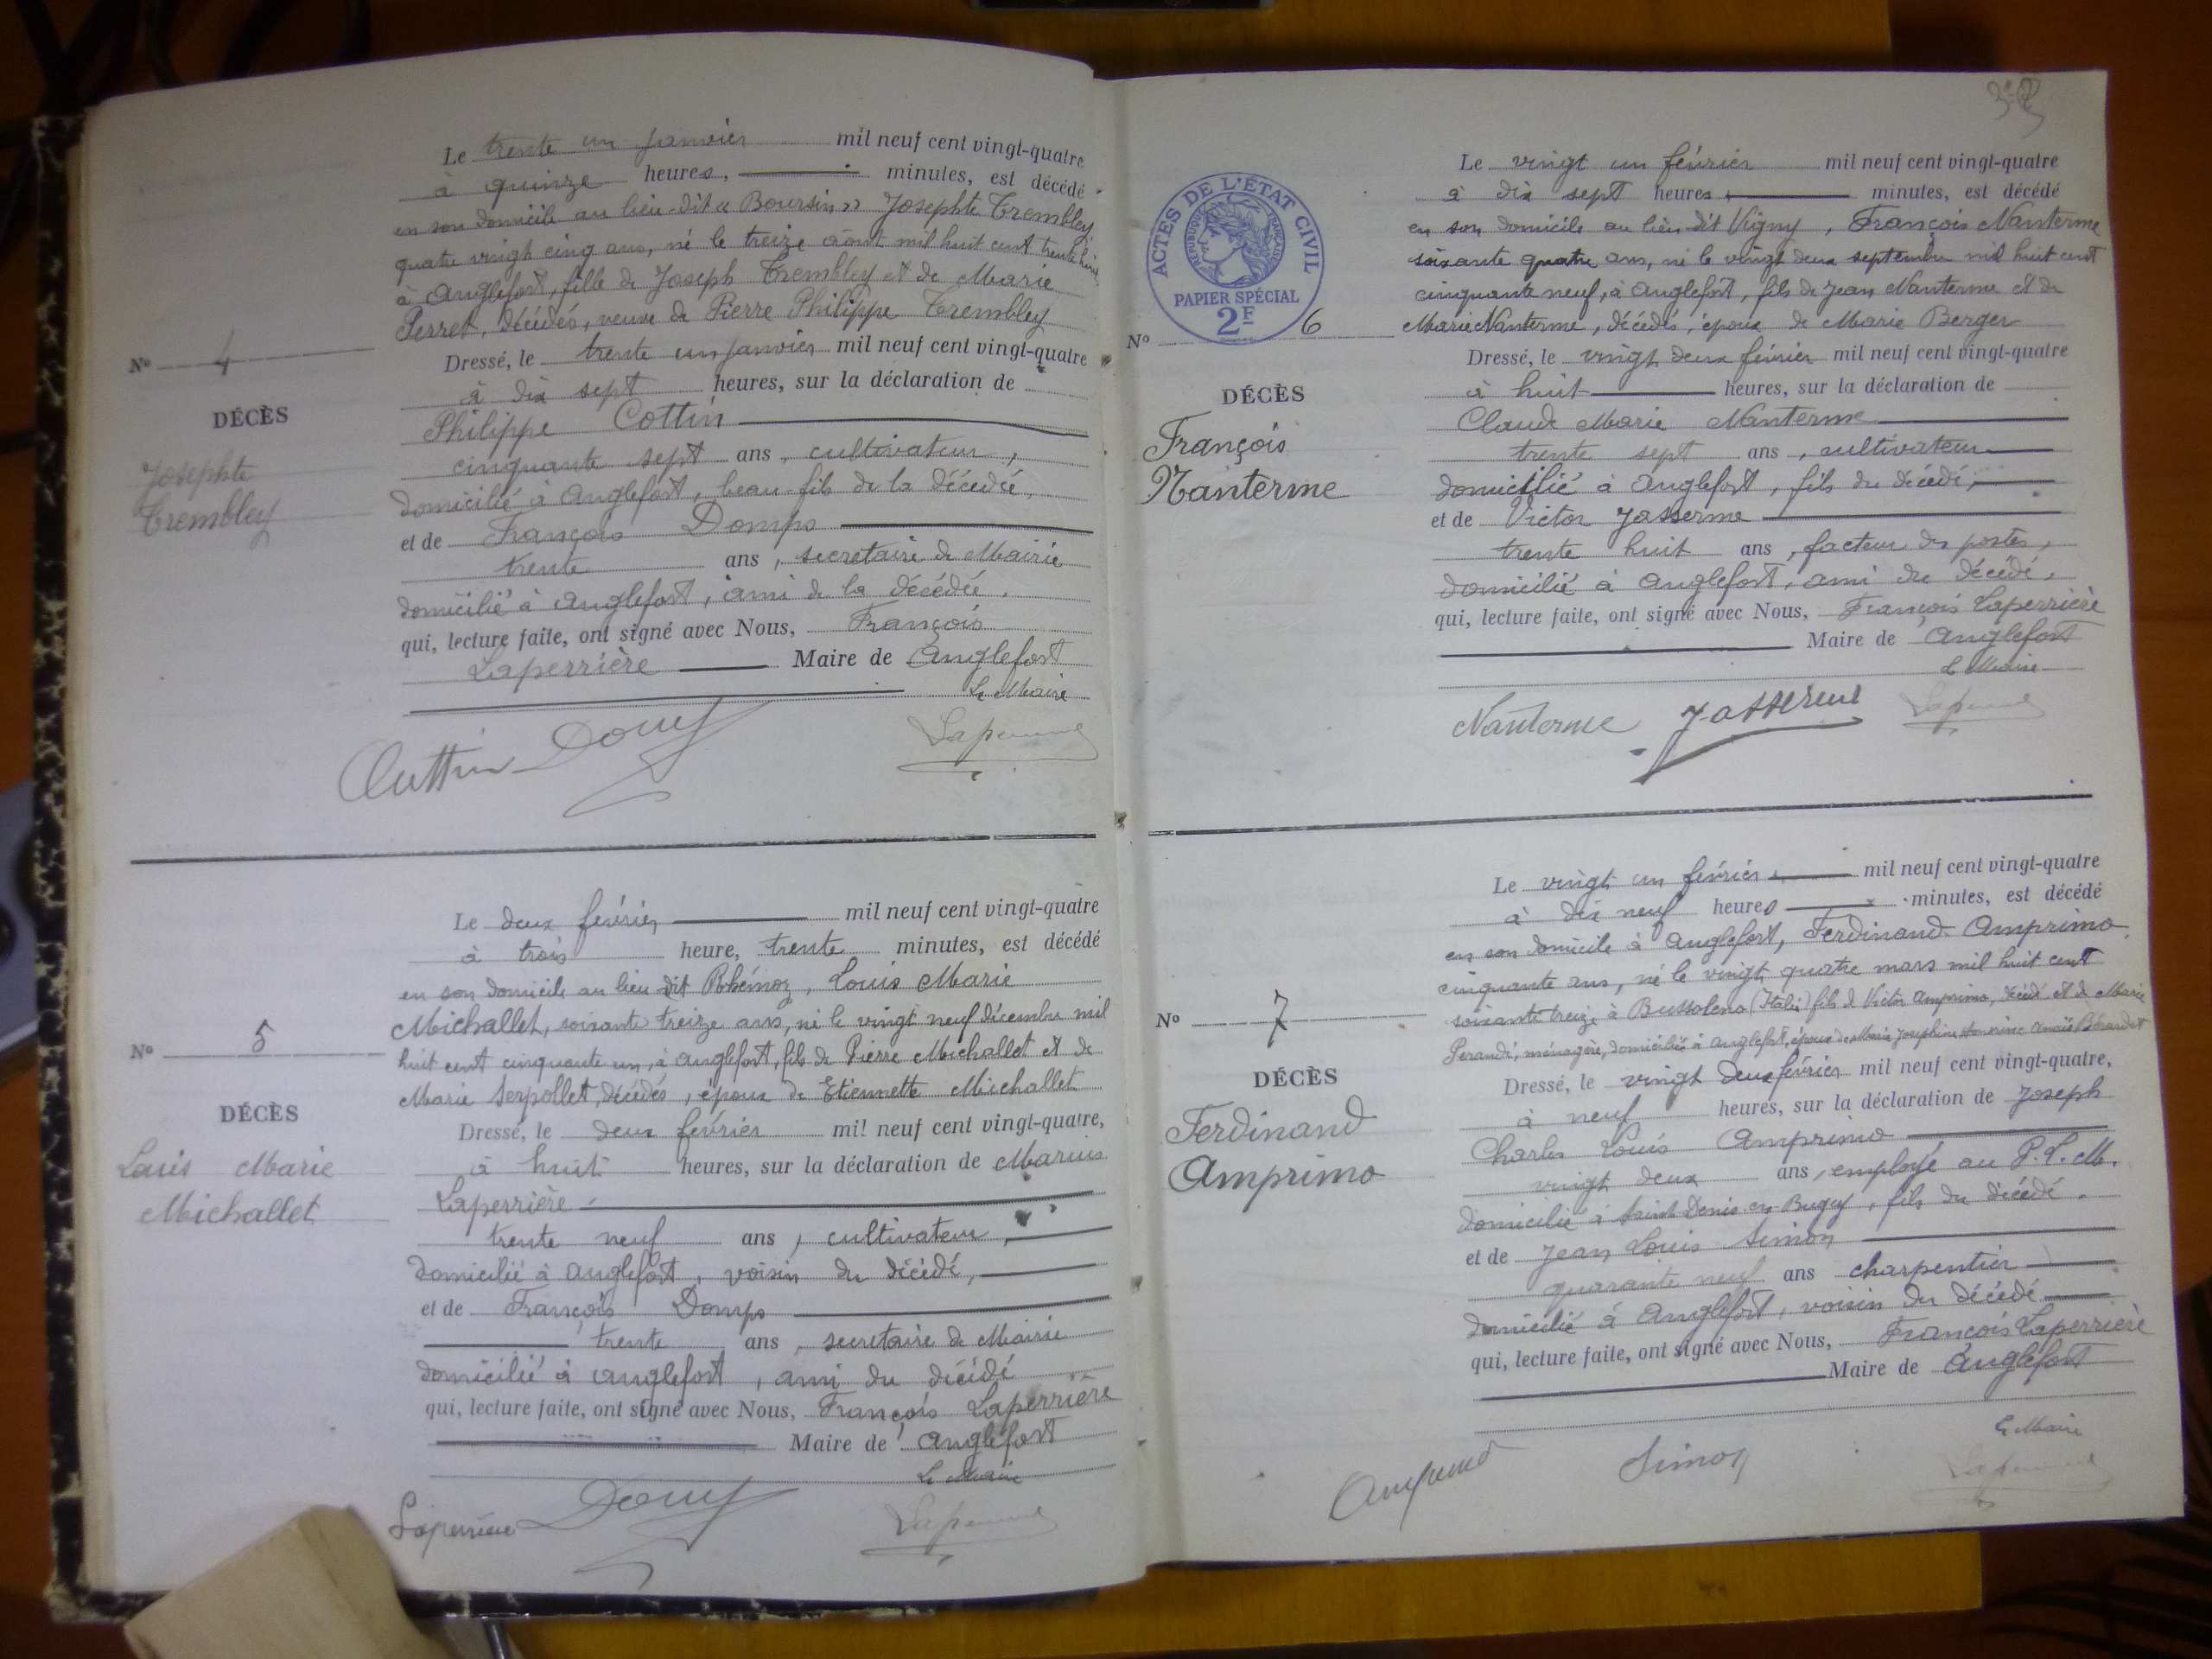 Le trente un janvier mil neuf cent vingt-quatre
à quinze heures, minutes, est décédé
en son domicile au lieu-dit « Boursin » Josephte Trembley
quatre vingt cinq ans, né le treize août mil huit cent trente huit
à Anglefort, fille de Joseph Trembley et de Marie
Perret, décédés, veuve de Pierre Philippe Trembley
Nº 4
Dressé, le trente un janvier mil neuf cent vingt-quatre
à dix sept heures, sur la déclaration de
DÉCÈS
Josephte
Trembley
Philippe Cottin
cinquante sept ans, cultivateur,
domicilié à Anglefort, beau-fils de la décédée,
et de François Domps
trente ans, secretaire de Mairie
domicilié à Anglefort, ami de la décédée.
qui, lecture faite, ont signé avec Nous, François
Laperrière Maire de Anglefort
Le Maire
Nº 5
DÉCÈS
Louis Marie
Michallet
Le deux février mil neuf cent vingt-quatre
à trois heure, trente minutes, est décédé
en son domicile au lieu dit Rhémoz, Louis Marie
Michallet, soixante treize ans, né le vingt neuf décembre mil
huit cent cinquante un, à Anglefort, fils de Pierre Michallet et de
Marie Serpollet, décédés, époux de Etiennette Michallet
Dressé, le deux février mil neuf cent vingt-quatre,
à huit heures, sur la déclaration de Marius
Laperrière
trente neuf ans, cultivateur,
domicilié à Anglefort, voisin du décédé,
et de François Domps
trente ans, secretaire de Mairie
domicilié à Anglefort, ami du décédé
qui, lecture faite, ont signé avec Nous, François Laperrière
Maire de Anglefort
Le Maire
Laperrière
ACTES DE L'ÉTAT CIVIL
RÉPUBLIQUE FRANÇAISE
PAPIER SPÉCIAL
2F
Nº 6
DÉCÈS
François
Nanterme
Le vingt un février mil neuf cent vingt-quatre
à dix sept heures minutes, est décédé
en son domicile au lieu dit Vigny, François Nanterme
soixante quatre ans, né le vingt deux septembre mil huit cent
cinquante neuf, à Anglefort, fils de Jean Nanterme et de
Marie Nanterme, décédés, époux de Marie Berger
Dressé, le vingt deux février mil neuf cent vingt-quatre
à huit heures, sur la déclaration de
Claude Marie Nanterme
trente sept ans, cultivateur
domicilié à Anglefort, fils du décédé,
et de Victor Jasserme
trente huit ans, facteur des postes,
domicilié à Anglefort, ami du décédé.
qui, lecture faite, ont signé avec Nous, François Laperrière
Maire de Anglefort
Le Maire
Nanterme
Nº 7
DÉCÈS
Ferdinand
Amprimo
Le vingt un février mil neuf cent vingt-quatre
à dix neuf heures minutes, est décédé
en son domicile à Anglefort, Ferdinand Amprimo,
cinquante ans, né le vingt quatre mars mil huit cent
soixante treize à Bussoleno (Italie) fils de Victor Amprimo, décédé et de Marie
Perandi, ménagère, domiciliée à Anglefort, époux de Marie Josephine Honorine Anaïs
Dressé, le vingt deux février mil neuf cent vingt-quatre,
à neuf heures, sur la déclaration de Joseph
Charles Louis Amprimo
vingt deux ans, employé au P.L.M.
domicilié à Saint Denis en Bugey, fils du décédé.
et de Jean Louis Simon
quarante neuf ans charpentier
domicilié à Anglefort, voisin du décédé
qui, lecture faite, ont signé avec Nous, François Laperrière
Maire de Anglefort
Le Maire
Simon